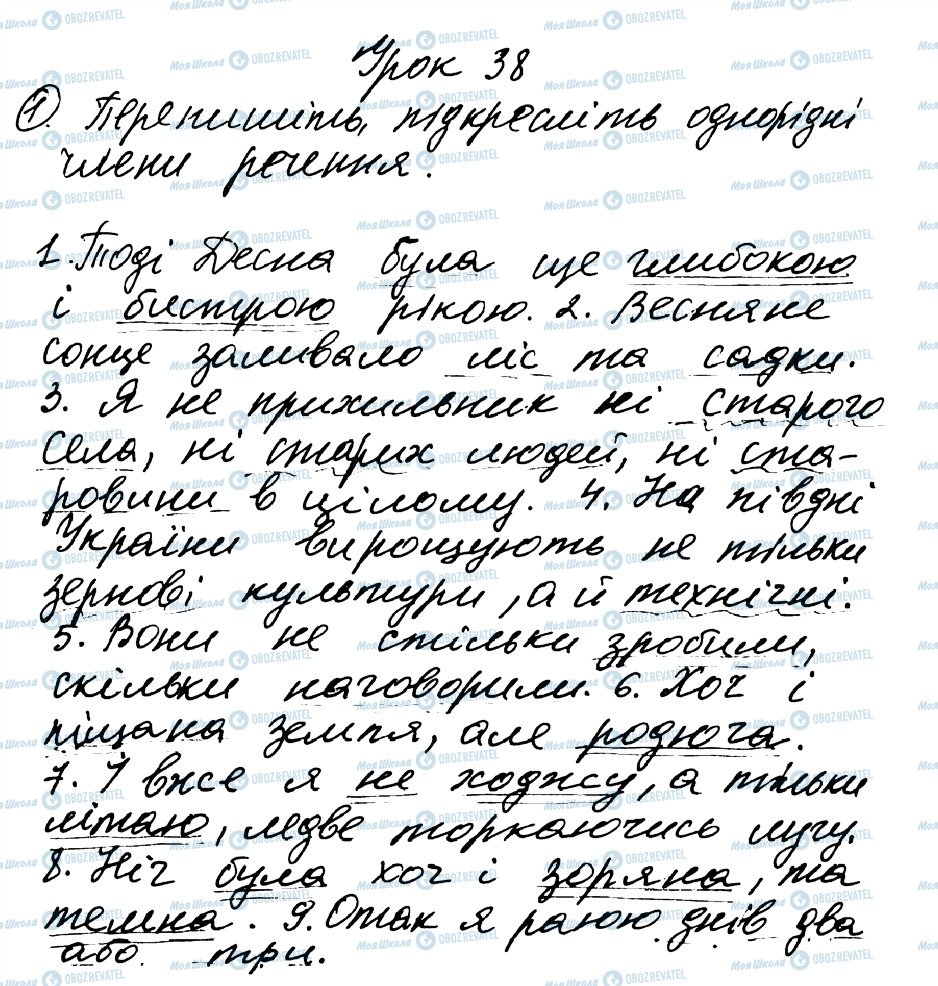 Урок 38
1. Перепишіть, підкресліть однорідні
члени речення.
1. Тоді Десна була ще глибокою
і бистрою рікою. 2. Весняне
сонце заливало ліс та садки.
3. Я не прихильник ні старого
села, ні старих людей, ні ста-
ровини в цілому. 4. На півдні
України вирощують не тільки
зернові культури, а й технічні.
5. Вони не стільки зробили,
скільки наговорили. 6. Хоч і
піщана земля, але родюча.
7. І вже я не ходжу, а тільки
літаю, ледве торкаючись лугу.
8. Ніч була хоч і зоряна, та
темна. 9. Отак я раною днів два
або три.